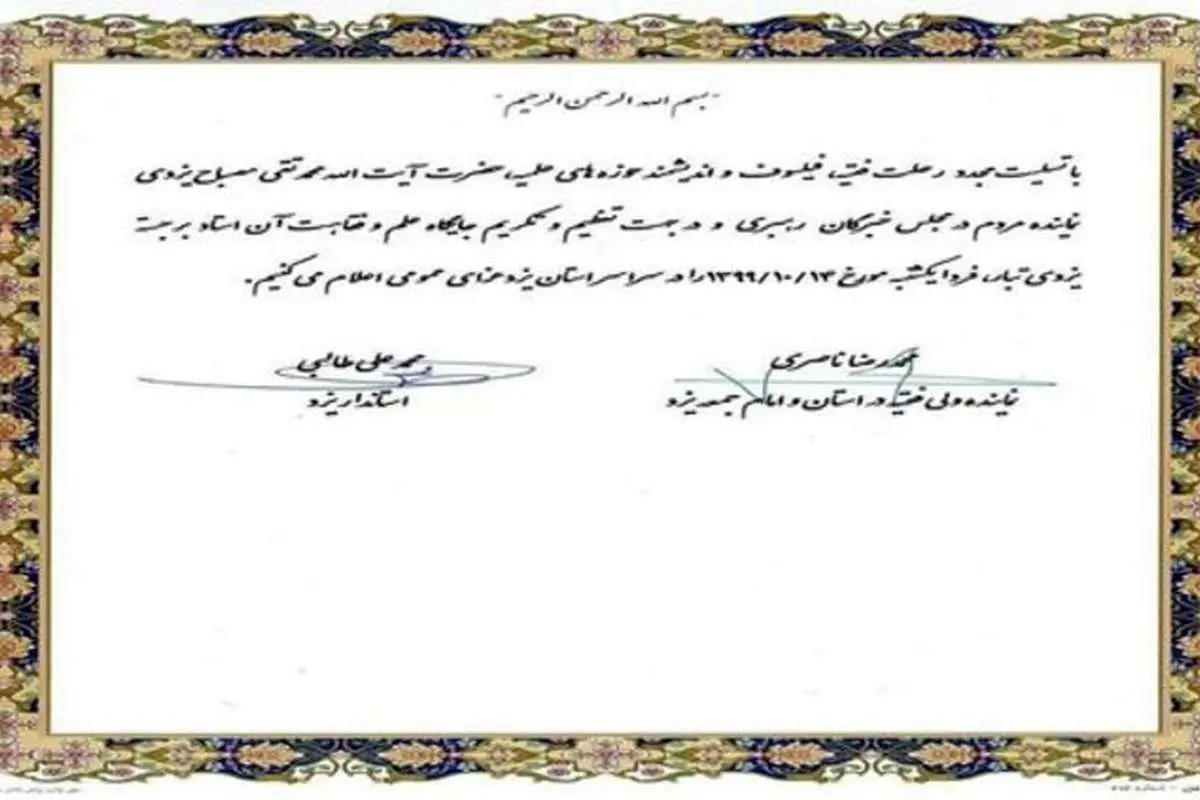 بسم الله الرحمن الرحیم
با تسلیت مجدد رحلت فقیه، فیلسوف و اندیشمند حوزه های علمیه، حضرت آیت الله محمد تقی مصباح یزدی
نماینده مردم در مجلس خبرگان رهبری و در جهت تعظیم و تکریم جایگاه علم و فقاهت آن استاد برجسته
یزدی تبار، فردا یکشنبه مورخ ۱۳۹۹/۱۰/۱۴ را در سراسر استان یزد عزای عمومی اعلام می کنیم.
محمدرضا ناصری
نماینده ولی فقیه در استان و امام جمعه یزد
محمد علی طالبی
استاندار یزد